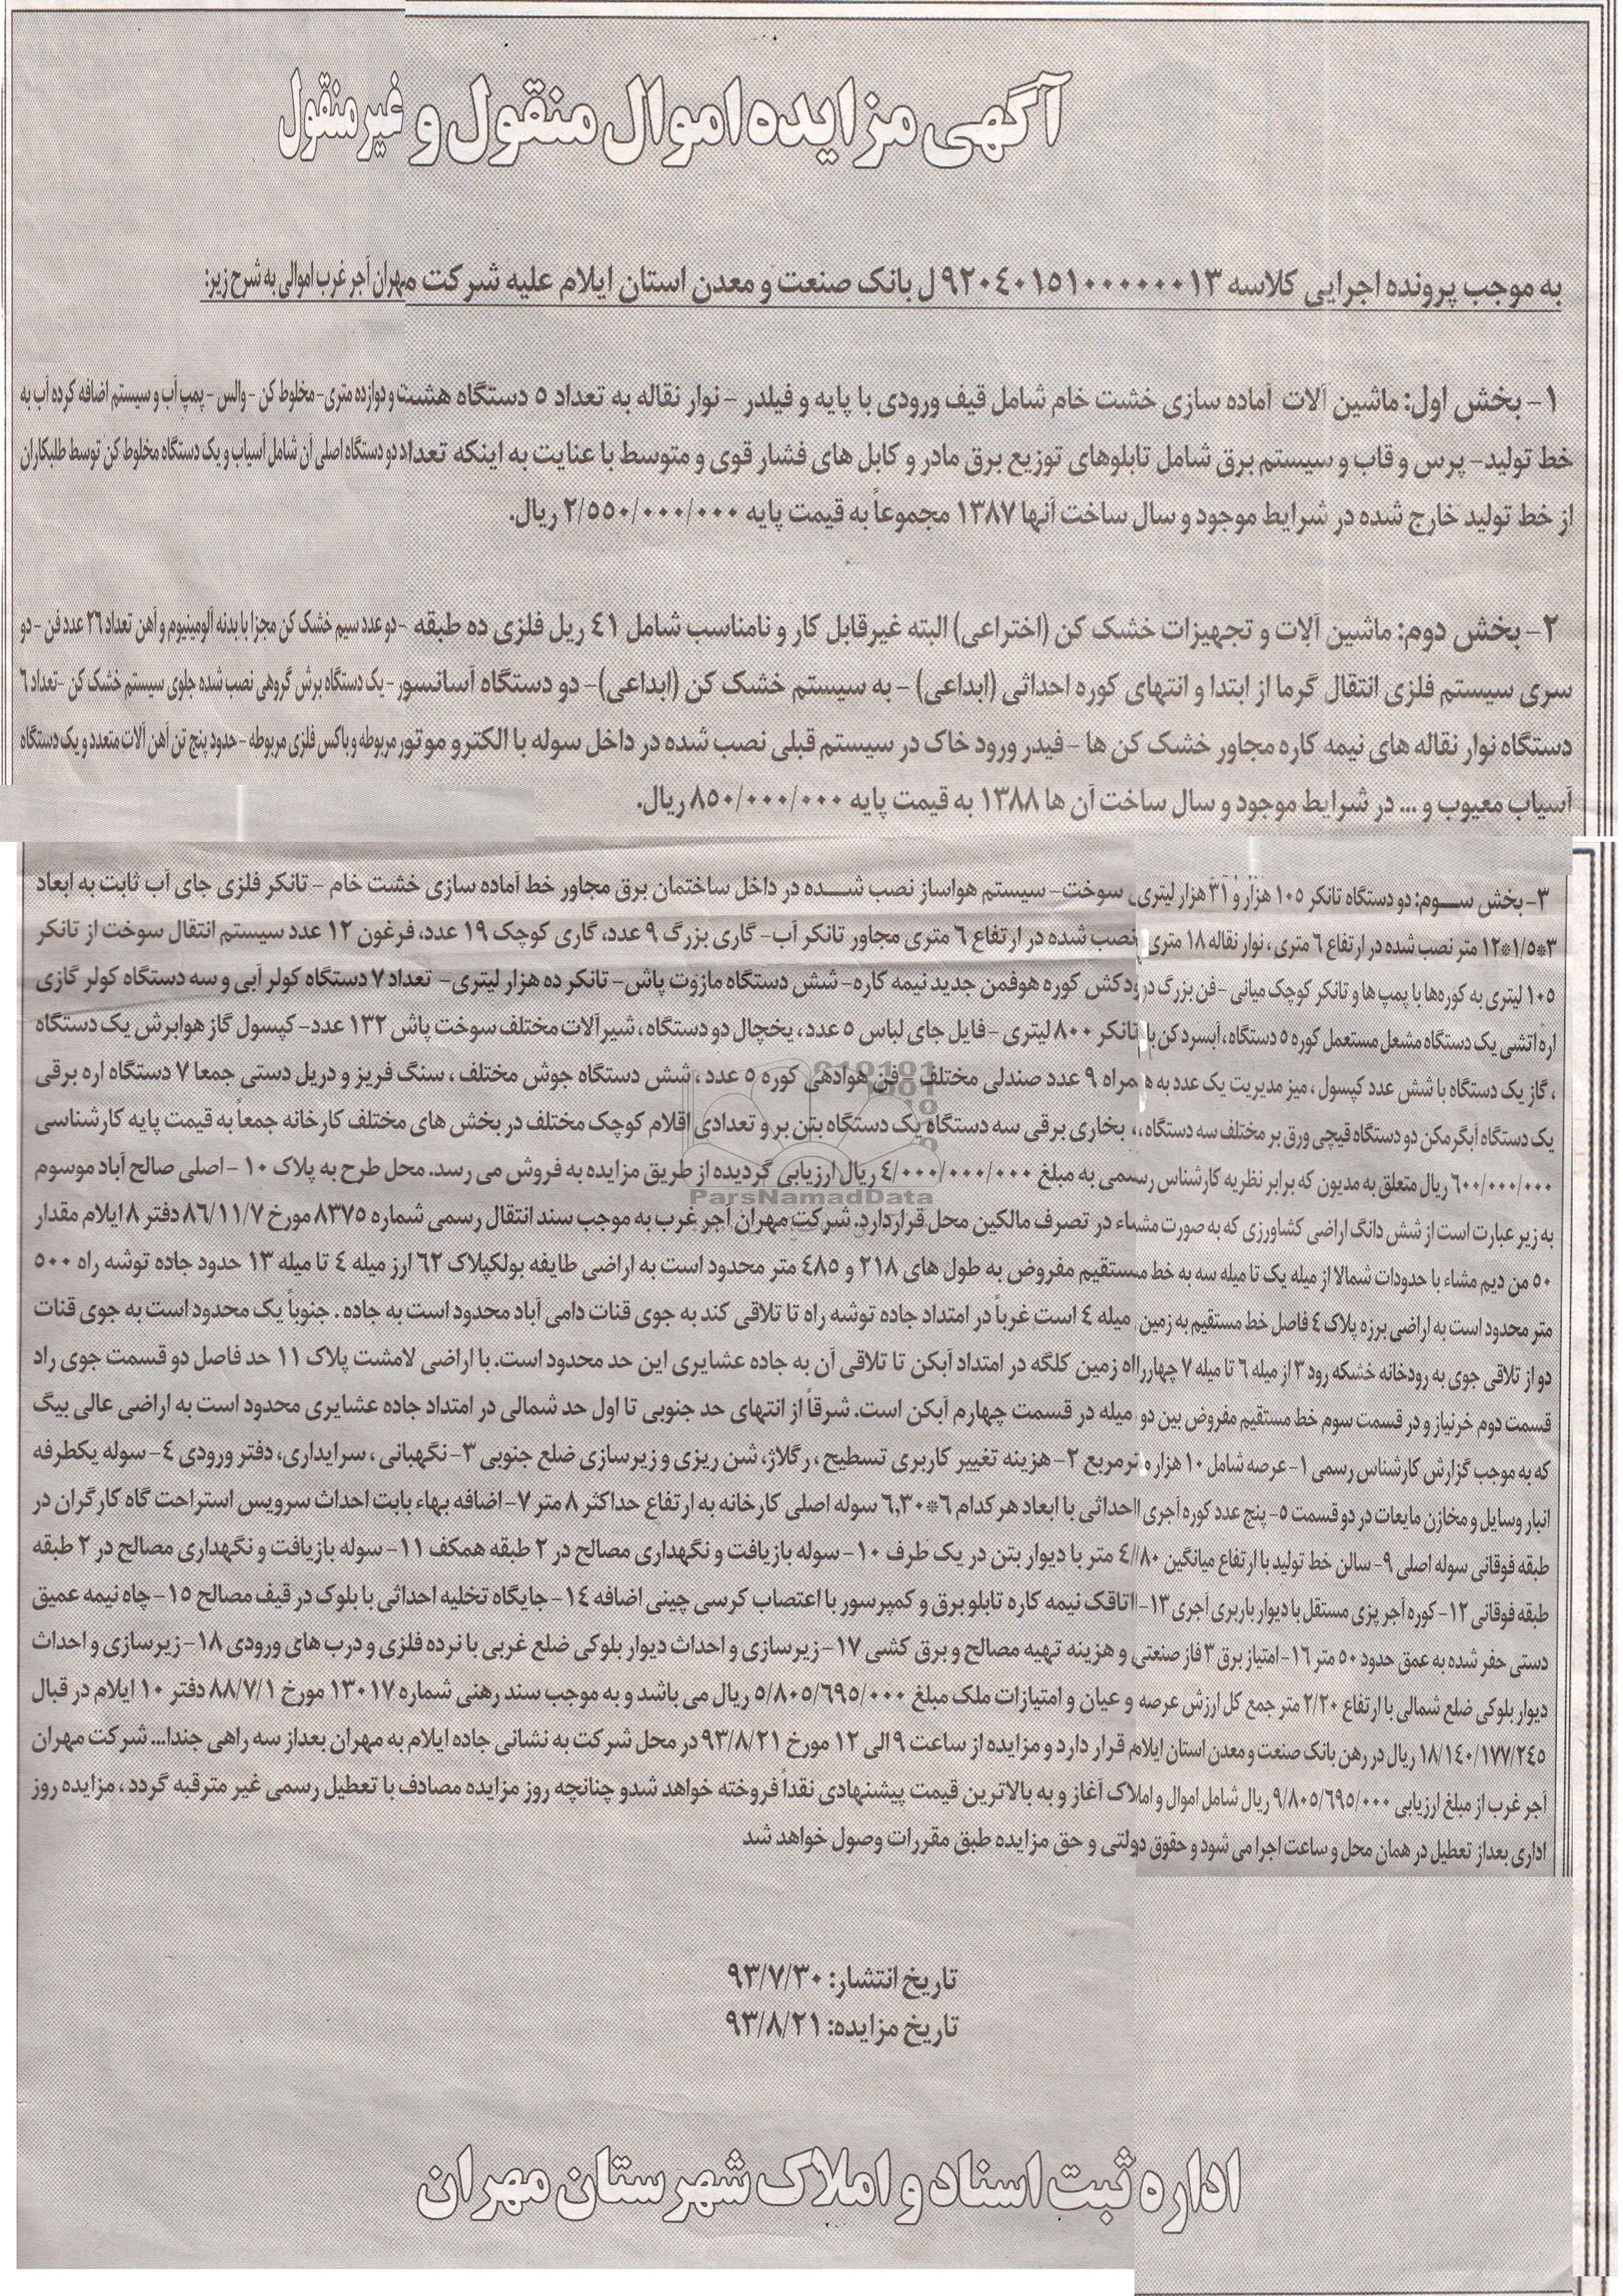 آگهی مزایده اموال منقول و غیر منقول
به موجب پرونده اجرایی کلاسه ۹۲۰۴۰۱۵۱۰۰۰۰۰۰۱۳ ل بانک صنعت و معدن استان ایلام علیه شرکت مهران آجر غرب اموالی به شرح زیر:
۱- بخش اول: ماشین آلات آماده سازی خشت خام شامل قیف ورودی با پایه و فیلدر - نوار نقاله به تعداد ۵ دستگاه هشت و دوازده متری- مخلوط کن - والس - پمپ آب و سیستم اضافه کرده آب به
خط تولید- پرس و قاب و سیستم برق شامل تابلوهای توزیع برق مادر و کابل های فشار قوی و متوسط با عنایت به اینکه تعداد دو دستگاه اصلی آن شامل آسیاب و یک دستگاه مخلوط کن توسط طلبکاران
از خط تولید خارج شده در شرایط موجود و سال ساخت آنها ۱۳۸۷ مجموعاً به قیمت پایه ۲/۵۵۰/۰۰۰/۰۰۰ ریال.
۲- بخش دوم: ماشین آلات و تجهیزات خشک کن (اختراعی) البته غیرقابل کار و نامناسب شامل ۴۱ ریل فلزی ده طبقه -دو عدد سیم خشک کن مجزا با بدنه آلومینیوم و آهن تعداد ۲۶ عدد فن - دو
سری سیستم فلزی انتقال گرما از ابتدا و انتهای کوره احداثی (ابداعی) - به سیستم خشک کن (ابداعی)- دو دستگاه آسانسور - یک دستگاه برش گروهی نصب شده جلوی سیستم خشک کن -تعداد ۶
دستگاه نوار نقاله های نیمه کاره مجاور خشک کن ها - فیدر ورود خاک در سیستم قبلی نصب شده در داخل سوله با الکترو موتور مربوطه و باکس فلزی مربوطه - حدود پنج تن آهن آلات متعدد و یک دستگاه
آسیاب معیوب و ... در شرایط موجود و سال ساخت آن ها ۱۳۸۸ به قیمت پایه ۸۵۰/۰۰۰/۰۰۰ ریال.
۳- بخش سوم: دو دستگاه تانکر ۱۰۵ هزار و ۳۱ هزار لیتری سوخت- سیستم هواساز نصب شده در داخل ساختمان برق مجاور خط آماده سازی خشت خام - تانکر فلزی جای آب ثابت به ابعاد
۳*۱/۵*۱۲ متر نصب شده در ارتفاع ۶ متری ، نوار نقاله ۱۸ متری نصب شده در ارتفاع ۶ متری مجاور تانکر آب- گاری بزرگ ۹ عدد، گاری کوچک ۱۹ عدد، فرغون ۱۲ عدد سیستم انتقال سوخت از تانکر
۱۰۵ لیتری به کوره‌ها با پمپ ها و تانکر کوچک میانی - فن بزرگ دودکش کوره هوفمن جدید نیمه کاره- شش دستگاه مازوت پاش- تانکر ده هزار لیتری- تعداد ۷ دستگاه کولر آبی و سه دستگاه کولر گازی
اره آتشی یک دستگاه مشعل مستعمل کوره ۵ دستگاه، آبسرد کن با تانکر ۸۰۰ لیتری - فایل جای لباس ۵ عدد ، یخچال دو دستگاه ، شیرآلات مختلف سوخت پاش ۱۳۲ عدد- کپسول گاز هوابرش یک دستگاه
، گاز یک دستگاه با شش عدد کپسول ، میز مدیریت یک عدد به همراه ۹ عدد صندلی مختلف فن هوادهی کوره ۵ عدد ، شش دستگاه جوش مختلف ، سنگ فریز و دریل دستی جمعا ۷ دستگاه اره برقی
یک دستگاه آبگرمکن دو دستگاه قیچی ورق بر مختلف سه دستگاه ، بخاری برقی سه دستگاه یک دستگاه بتن بر و تعدادی اقلام کوچک مختلف در بخش های مختلف کارخانه جمعاً به قیمت پایه کارشناسی
۶۰۰/۰۰۰/۰۰۰ ریال متعلق به مدیون که برابر نظریه کارشناس رسمی به مبلغ ۴/۰۰۰/۰۰۰/۰۰۰ ریال ارزیابی گردیده از طریق مزایده به فروش می رسد. محل طرح به پلاک ۱۰ - اصلی صالح آباد موسوم
ParsNamadData
به زیر عبارت است از شش دانگ اراضی کشاورزی که به صورت مشاء در تصرف مالکین محل قرار دارد. شرکت مهران آجر غرب به موجب سند انتقال رسمی شماره ۸۳۷۵ مورخ ۸۶/۱۱/۷ دفتر ۸ ایلام مقدار
۵۰ من دیم مشاء با حدودات شمالا از میله یک تا میله سه به خط مستقیم مفروض به طول های ۲۱۸ و ۴۸۵ متر محدود است به اراضی طایفه بولکپلاک ۶۲ ارز میله ۴ تا میله ۱۳ حدود جاده توشه راه ۵۰۰
متر محدود است به اراضی برزه پلاک ۴ فاصل خط مستقیم به زمین میله ۴ است غرباً در امتداد جاده توشه راه تا تلاقی کند به جوی قنات دامی آباد محدود است به جاده . جنوباً یک محدود است به جوی قنات
دو از تلاقی جوی به رودخانه خشکه رود ۳ از میله ۶ تا میله ۷ چهارراه زمین کلگه در امتداد آبکن تا تلاقی آن به جاده عشایری این حد محدود است. با اراضی لامشت پلاک ۱۱ حد فاصل دو قسمت جوی راد
قسمت دوم خرنیاز و در قسمت سوم خط مستقیم مفروض بین دو میله در قسمت چهارم آبکن است. شرقاً از انتهای حد جنوبی تا اول حد شمالی در امتداد جاده عشایری محدود است به اراضی عالی بیگ
که به موجب گزارش کارشناس رسمی ۱- عرصه شامل ۱۰ هزار مترمربع ۲- هزینه تغییر کاربری تسطیح ، رگلاژ، شن ریزی و زیرسازی ضلع جنوبی ۳- نگهبانی ، سرایداری، دفتر ورودی ۴- سوله یکطرفه
انبار وسایل و مخازن مایعات در دو قسمت ۵- پنج عدد کوره آجری احداثی با ابعاد هر کدام ۶*۶,۳۰ سوله اصلی کارخانه به ارتفاع حداکثر ۸ متر ۷- اضافه بهاء بابت احداث سرویس استراحت گاه کارگران در
طبقه فوقانی سوله اصلی ۹- سالن خط تولید با ارتفاع میانگین ۴/۸۰ متر با دیوار بتن در یک طرف ۱۰- سوله بازیافت و نگهداری مصالح در ۲ طبقه همکف ۱۱- سوله بازیافت و نگهداری مصالح در ۲ طبقه
طبقه فوقانی ۱۲- کوره آجر پزی مستقل با دیوار باربری آجری ۱۳- اتاقک نیمه کاره تابلو برق و کمپرسور با اعتصاب کرسی چینی اضافه ۱۴- جایگاه تخلیه احداثی با بلوک در قیف مصالح ۱۵- چاه نیمه عمیق
دستی حفر شده به عمق حدود ۵۰ متر ۱۶- امتیاز برق ۳ فاز صنعتی و هزینه تهیه مصالح و برق کشی ۱۷- زیرسازی و احداث دیوار بلوکی ضلع غربی با نرده فلزی و درب های ورودی ۱۸- زیرسازی و احداث
دیوار بلوکی ضلع شمالی با ارتفاع ۲/۲۰ متر جمع کل ارزش عرصه و عیان و امتیازات ملک مبلغ ۵/۸۰۵/۶۹۵/۰۰۰ ریال می باشد و به موجب سند رهنی شماره ۱۳۰۱۷ مورخ ۸۸/۷/۱ دفتر ۱۰ ایلام در قبال
۱۸/۱۴۰/۱۷۷/۲۴۵ ریال در رهن بانک صنعت و معدن استان ایلام قرار دارد و مزایده از ساعت ۹ الی ۱۲ مورخ ۹۳/۸/۲۱ در محل شرکت به نشانی جاده ایلام به مهران بعداز سه راهی جندا... شرکت مهران
آجر غرب از مبلغ ارزیابی ۹/۸۰۵/۶۹۵/۰۰۰ ریال شامل اموال و املاک آغاز و به بالاترین قیمت پیشنهادی نقداً فروخته خواهد شدو چنانچه روز مزایده مصادف با تعطیل رسمی غیر مترقبه گردد ، مزایده روز
اداری بعداز تعطیل در همان محل و ساعت اجرا می شود و حقوق دولتی و حق مزایده طبق مقررات وصول خواهد شد
تاریخ انتشار: ۹۳/۷/۳۰
تاریخ مزایده: ۹۳/۸/۲۱
اداره ثبت اسناد و املاک شهرستان مهران